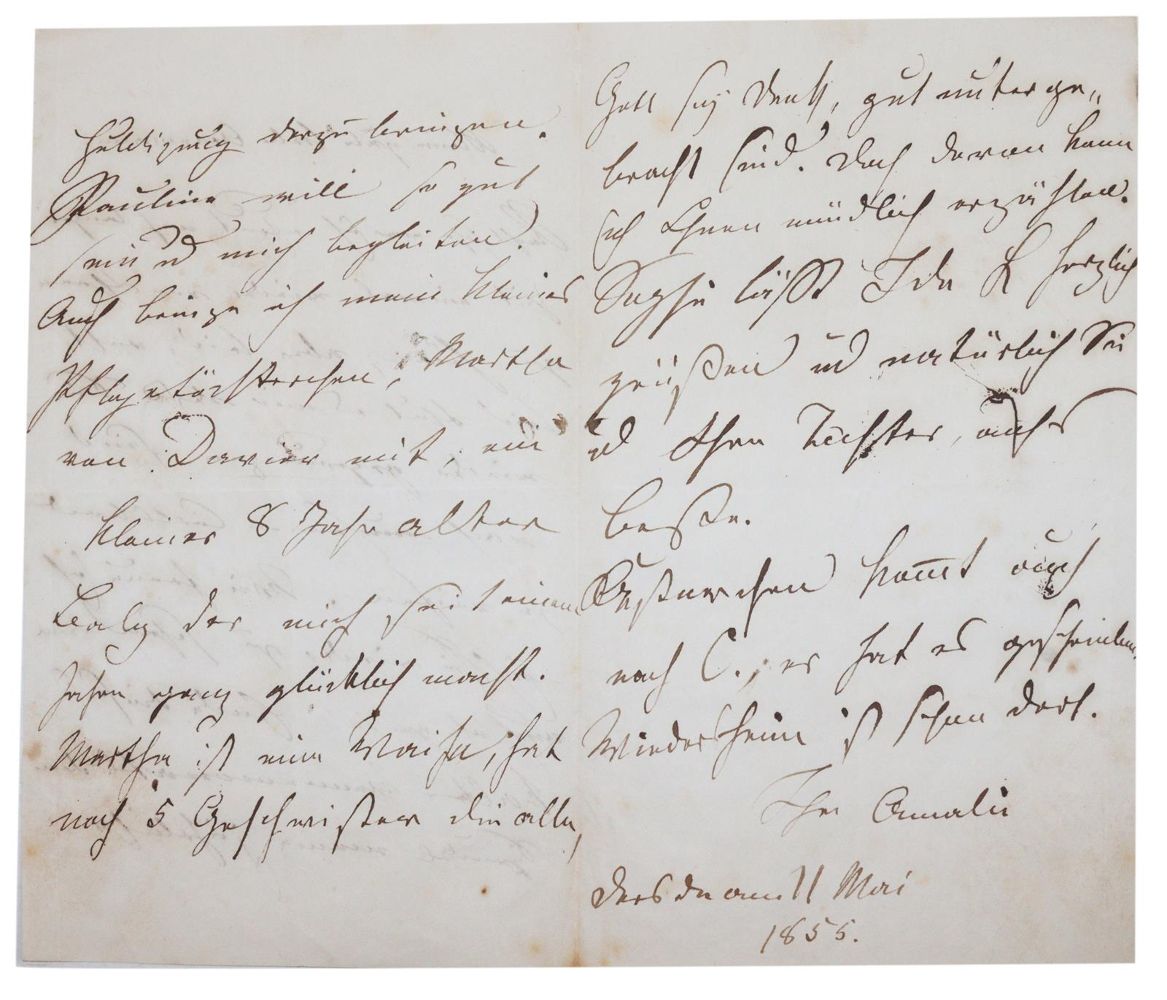 Huldigung darzubringen.
Pauline will so gut
sein u mich begleiten.
Auch bringe ich mein kleines
Pflegetöchterchen, Martha
von Davier mit, ein
kleines 8 Jahr altes
Baby das mich seit einem
Jahre ganz glücklich macht.
Martha ist eine Waise, hat
noch 5 Geschwister die alle,
Gott sey Dank, gut unterge„
bracht sind. Doch davon kann
ich Ihnen mündlich erzählen.
Sophie läßt Ida herzlich
grüßen u natürlich Sie
u Ihre Tochter, aufs
beste.
kommt auch
nach C., er hat es geschrieben.
Wiedersheim ist schon dort.
Ihre Amalie
Dresden am 11 Mai
1855.